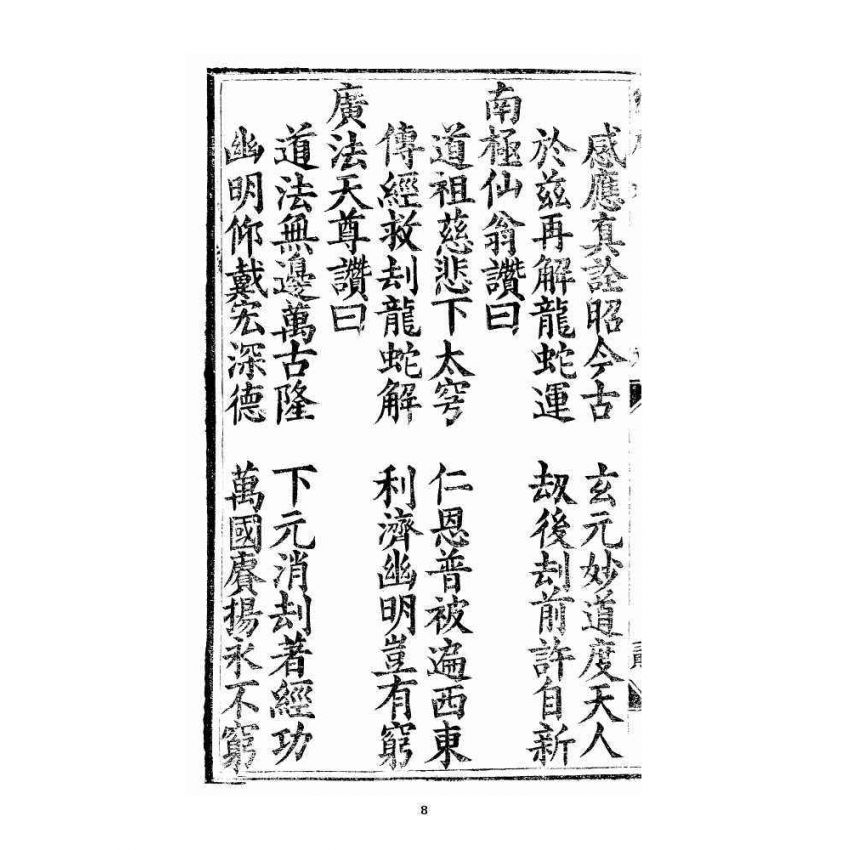 感應真詮昭今古　玄元妙道度天人
於兹再解龍蛇運　刼後刦前許自新
南極仙翁讚曰
道祖慈悲下太穹　仁恩普被遍西東
傳經救刦龍蛇解　利濟幽明豈有窮
廣法天尊讚曰
道法無邊萬古隆　下元消刦著經功
幽明仰戴宏深德　萬國賡揚永不窮
8